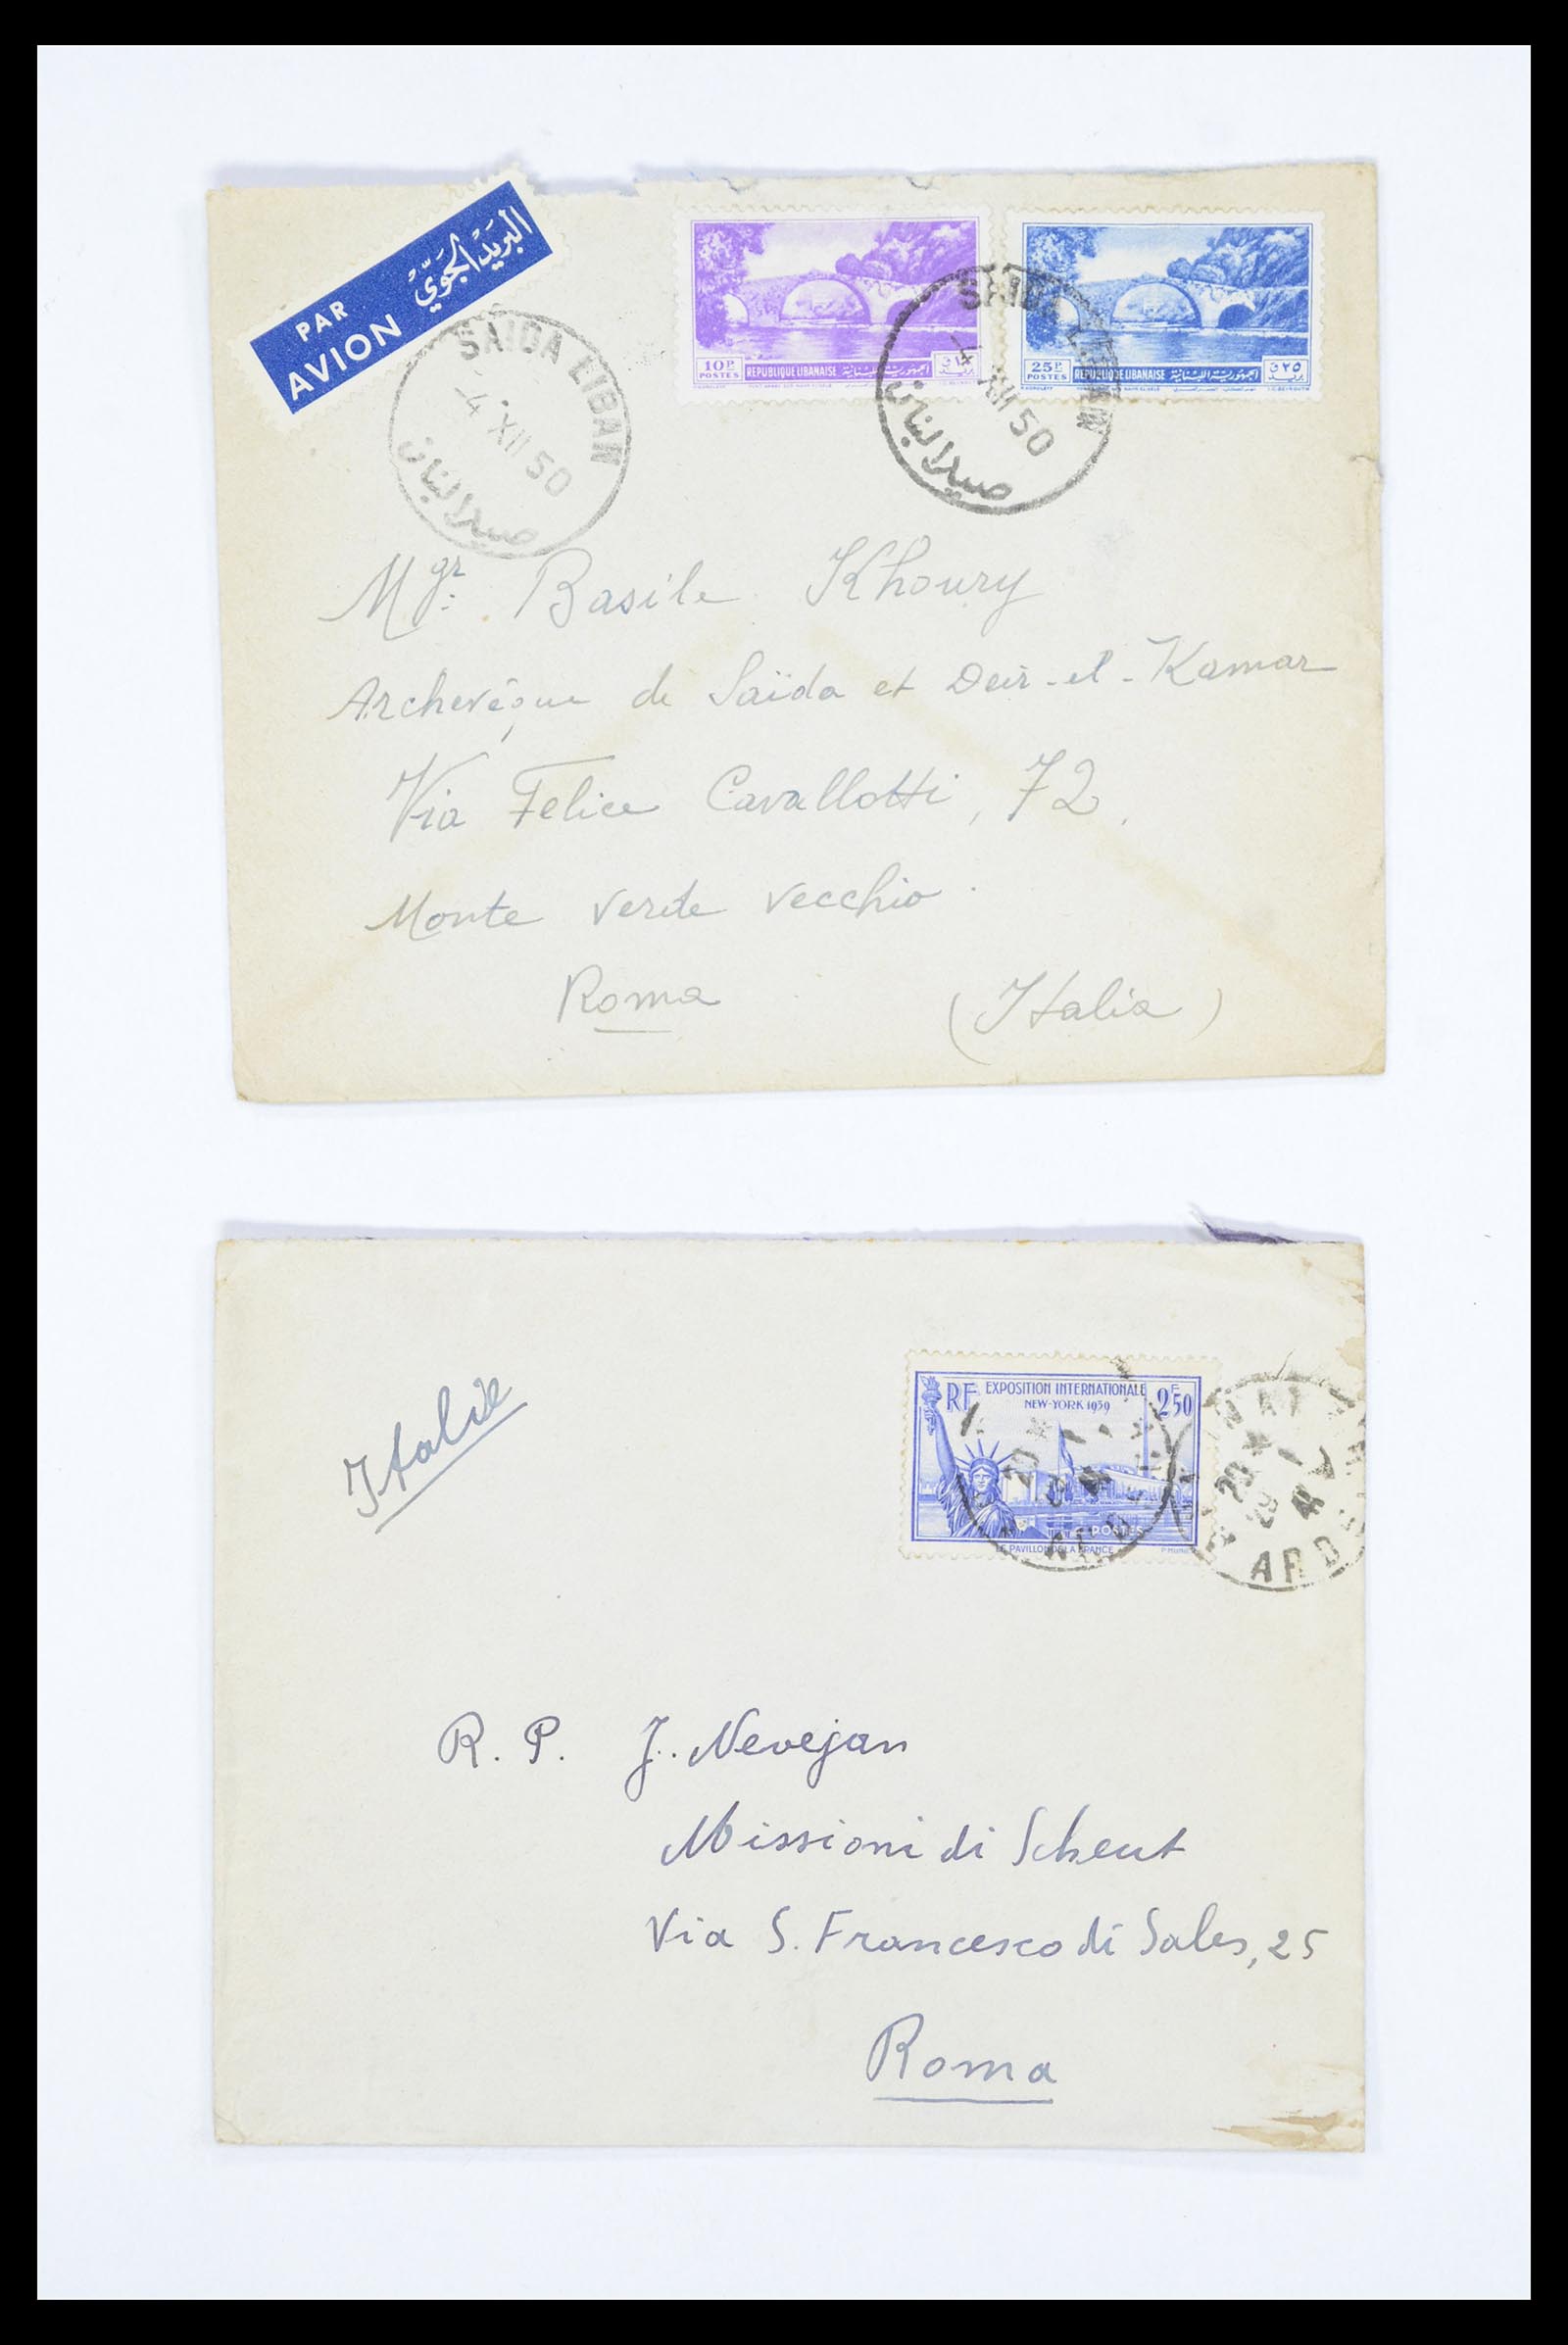 PAR
AVION
البريد الجوي
SAIDA LIBAN
-4 XII 50
صيدا لبنان
10P
POSTES
REPUBLIQUE LIBANAISE
الجمهورية اللبنانية
25P
POSTES
REPUBLIQUE LIBANAISE
الجمهورية اللبنانية
٢٥
SAIDA LIBAN
-4 XII 50
صيدا لبنان
Mgr: Basile Khoury
Archevêque de Saïda et Deir-el-Kamar
Via Felice Cavallotti, 72.
Monte verde vecchio.
Roma (Italia)
Italie
RF EXPOSITION INTERNATIONALE 2F50
NEW-YORK 1939
POSTES
LE PAVILLON DE LA FRANCE
R. P. J. Nevejan
Missioni di Scheut
Via S. Francesco di Sales, 25
Roma